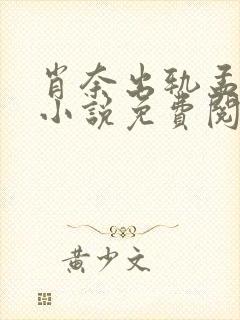 肖奈出轨孟
小說免費閱
黄少文